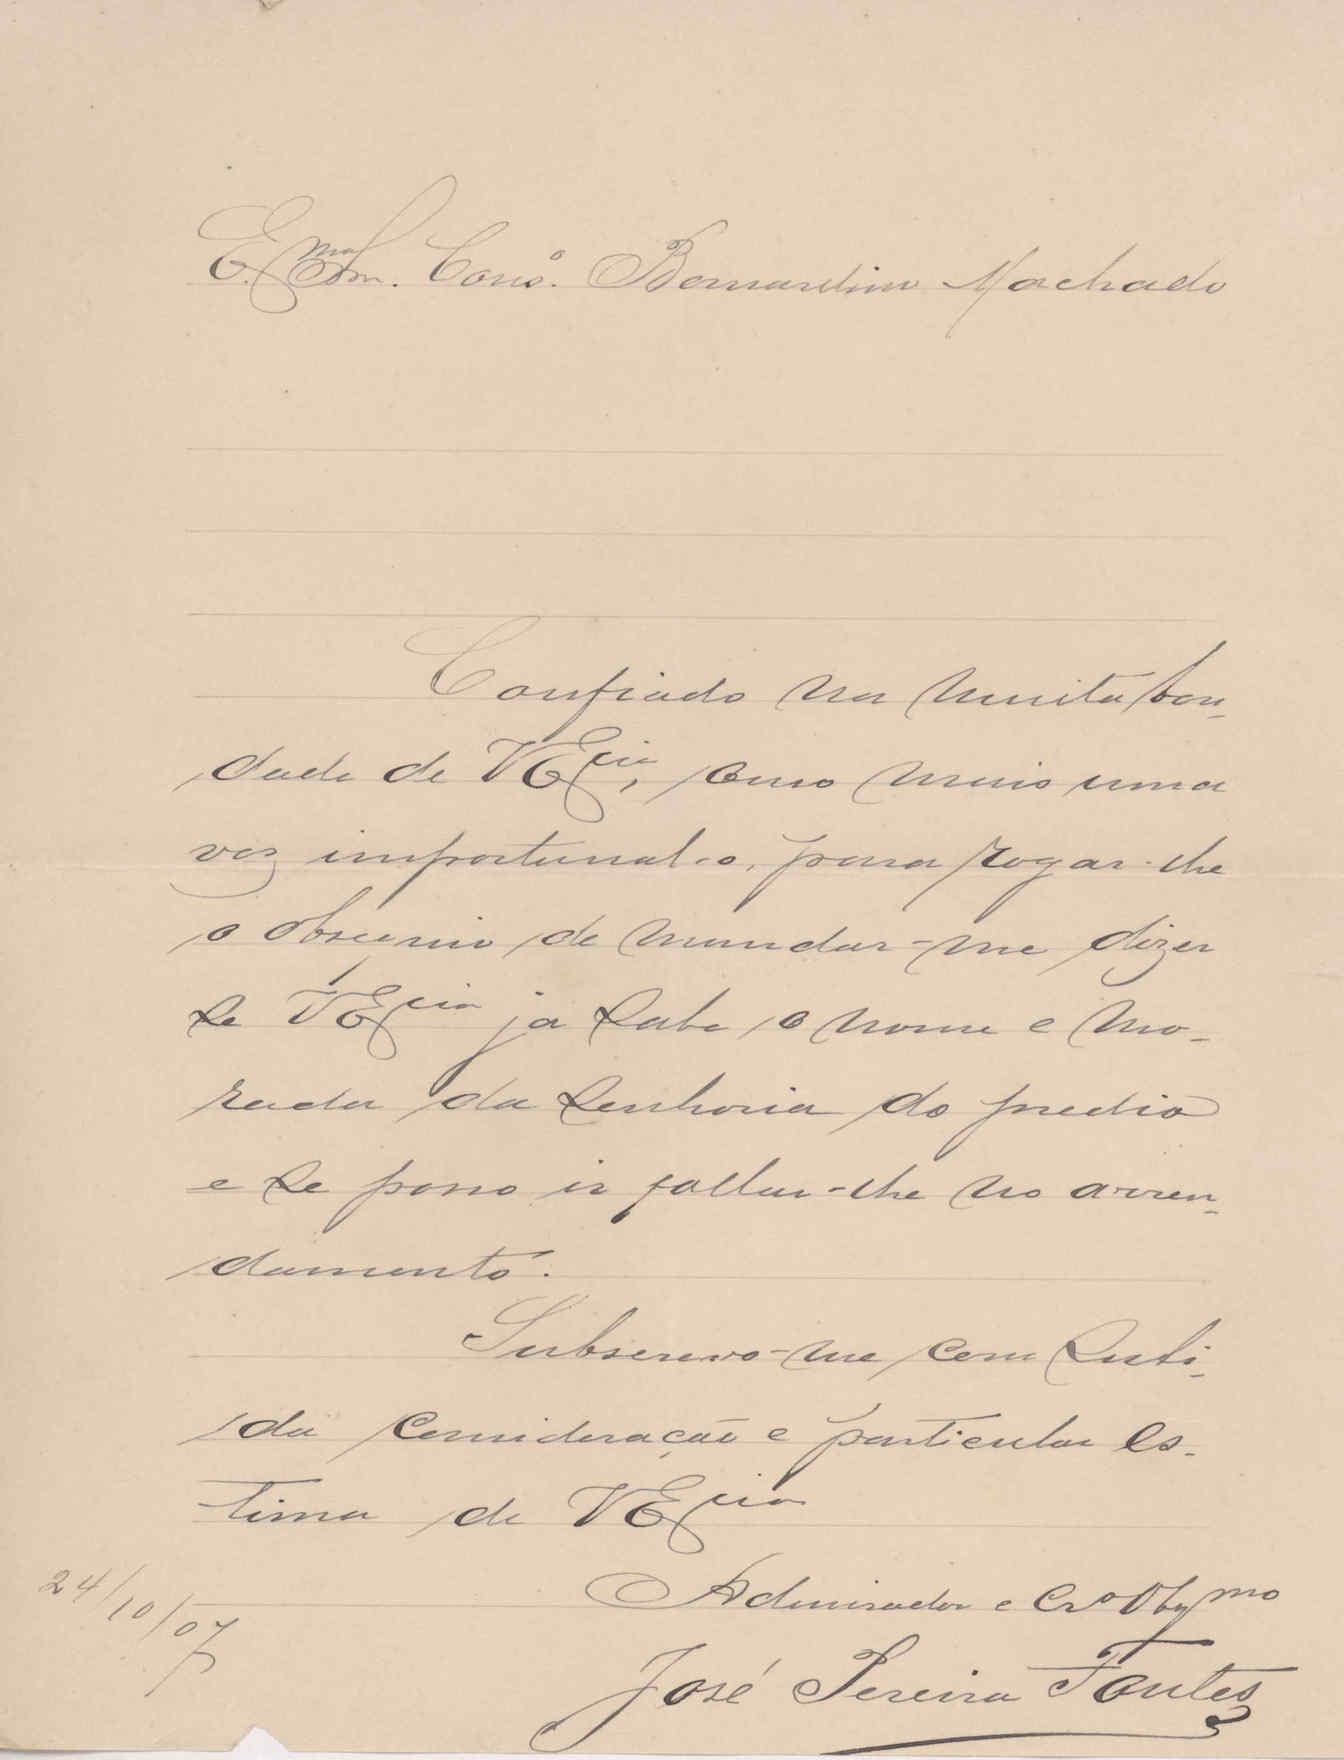 Exmo Snr. Conso. Bernardino Machado
Confiado na muita bon-
dade de VExcia, ouso mais uma
vez importunal-o, para rogar-lhe
o obsequio de mandar-me dizer
se VExcia ja sabe o nome e mo-
rada da senhoria do predio
e se posso ir fallar-lhe no arren-
damento.
Subscrevo-me com subi-
da consideração e particular es-
tima de VExcia
24/10/07
Admirador e Cro Obgmo
José Pereira Fontes